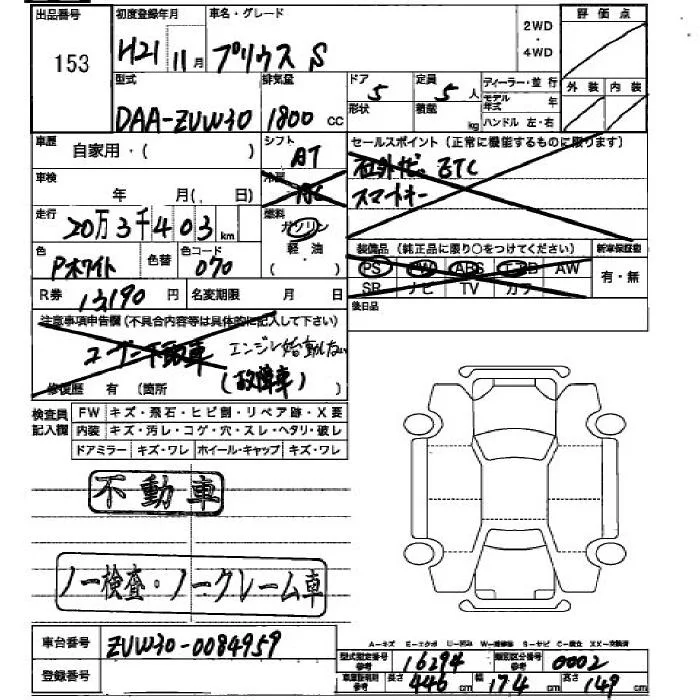 出品番号 初度登録年月 車名・グレード 2WD・4WD 評価点
153 H21 11月 プリウス S
型式 排気量 ドア 5 定員 5人 ディーラー・並行 外装 内装
DAA-ZUW30 1800 CC 形状 積載 kg モデル年式 年
ハンドル 左・右
車歴 自家用・( ) シフト AT セールスポイント(正常に機能するものに限ります)
社外ナビ。ETC
車検 年 月( 日) 冷房 AC スマートキー
走行 20万3千403km 燃料 ガソリン 軽油 ・( )
装備品(純正品に限り○をつけてください) 新車保証書
色 Pホワイト 色替 色コード 070 PS PW ABS エアB AW 有・無
SR ナビ TV カワ
R券 13,190円 名変期限 月 日 後日品
注意事項申告欄(不具合内容等は具体的に記入して下さい)
ユーザー下取車 エンジン始動しない
修復歴 有 (箇所 ) (故障車)
検査員記入欄 FW キズ・飛石・ヒビ割・リペア跡・X要
内装 キズ・汚レ・コゲ・穴・スレ・ヘタリ・破レ
ドアミラー キズ・ワレ ホイール・キャップ キズ・ワレ
不動車
ノー検査・ノークレーム車
A-キズ E-エクボ U-凹み W-補修跡 S-サビ C-腐食 XX-交換済
車台番号 ZUW30-0084959 型式指定番号 参考 16294 類別区分番号 参考 0002
登録番号 車庫証明用 参考 長さ 446cm 幅 174cm 高さ 149cm